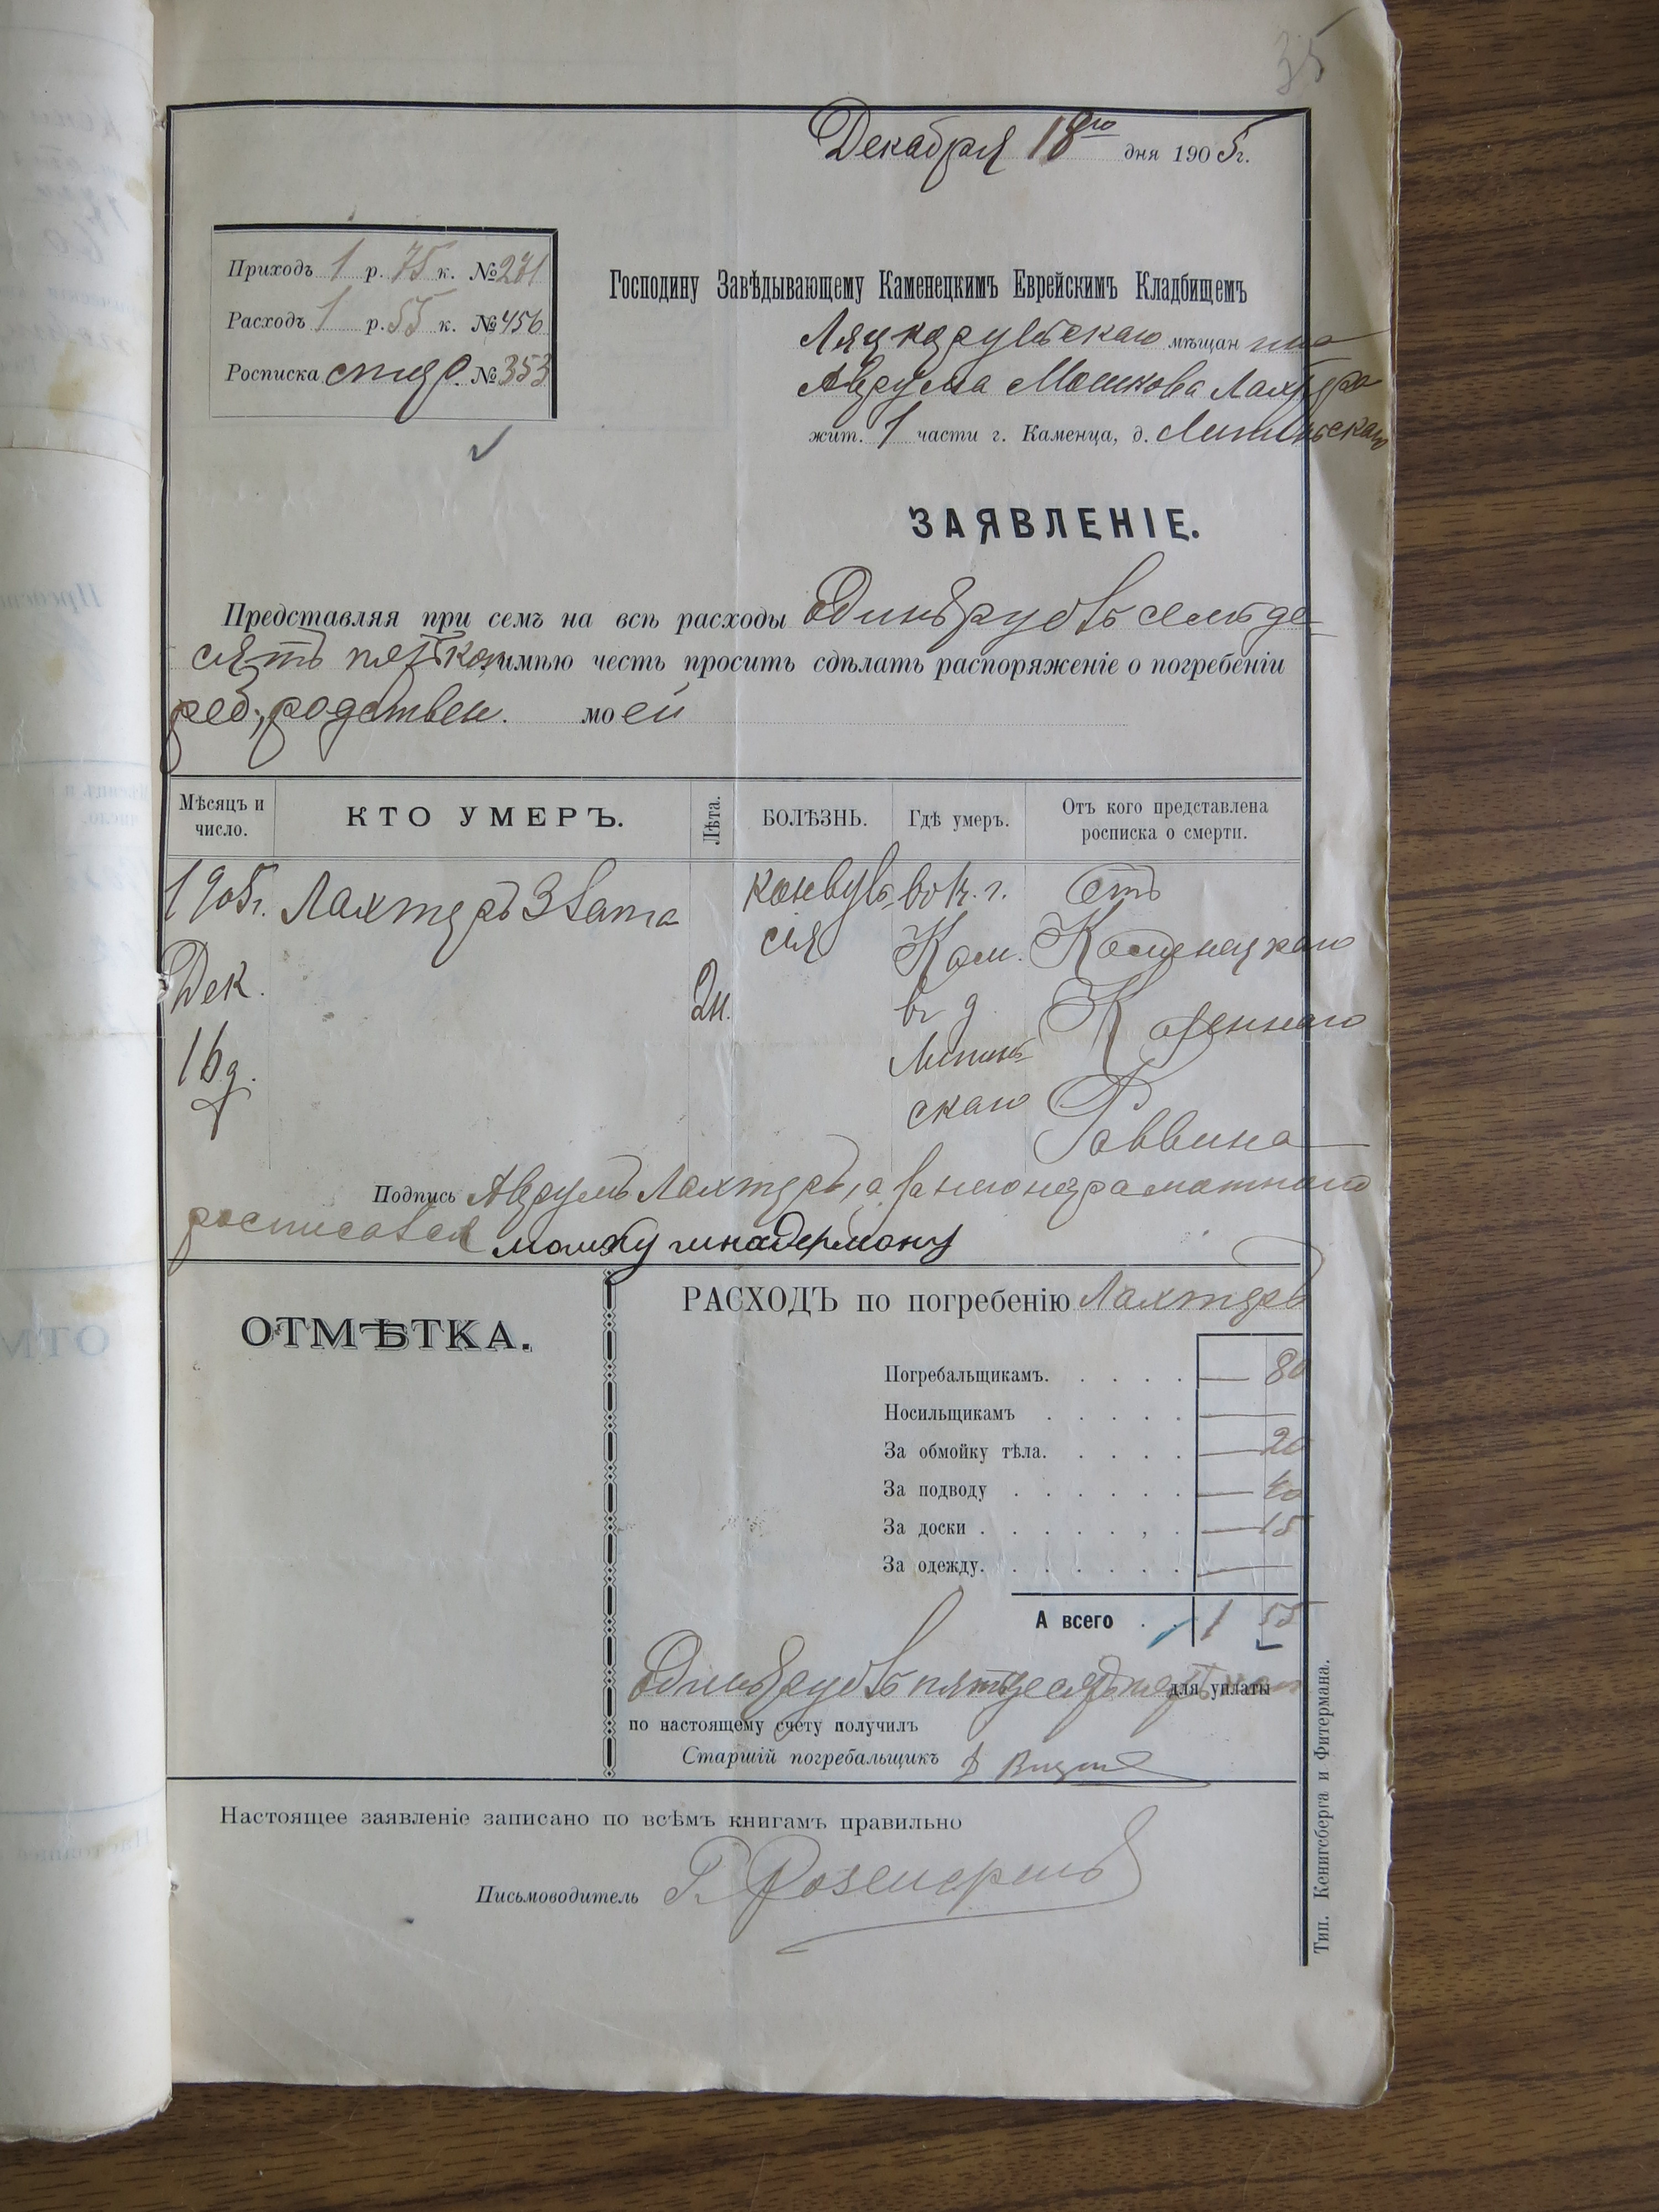 35
Декабря 18го дня 1905г.
Приходъ 1 р. 75 к. №271
Расходъ 1 р. 55 к. №456
Росписка №353
Господину Завѣдывающему Каменецкимъ Еврейскимъ Кладбищемъ
Ляцкорунскаго мѣщанина
Аврума Мошкова Лахтера
жит. 1 части г. Каменца, д. Литинскаго
ЗАЯВЛЕНІЕ.
Представляя при семъ на всѣ расходы Одинъ руб съ семьде-
сятъ пять коп имѣю честь просить сдѣлать распоряженіе о погребеніи
реб; родствен. моей
Мѣсяцъ и число.
КТО УМЕРЪ.
Лѣта.
БОЛѢЗНЬ.
Гдѣ умеръ.
Отъ кого представлена росписка о смерти.
1905г. Лахтеръ Злата конвуль въ к. г. Отъ
сія Кам. Каменецкаго
Дек. 2н. въ д Казеннаго
16д. Литин-
скаго Раввина
Подпись Аврумъ Лахтеръ, а за него неграмотнаго
росписался
ОТМѢТКА.
РАСХОДЪ по погребенію Лахтеръ
Погребальщикамъ. . . . . — 80
Носильщикамъ . . . . . —
За обмойку тѣла. . . . . — 20
За подводу . . . . . . — 40
За доски . . . . . , . — 15
За одежду. . . . . . . —
А всего . . 1 55
Одинъ руб съ пятьдесятъ пять коп для уплаты
по настоящему счету получилъ
Старшій погребальщикъ
Настоящее заявленіе записано по всѣмъ книгамъ правильно
Письмоводитель
Тип. Кенигсберга и Фитермана.